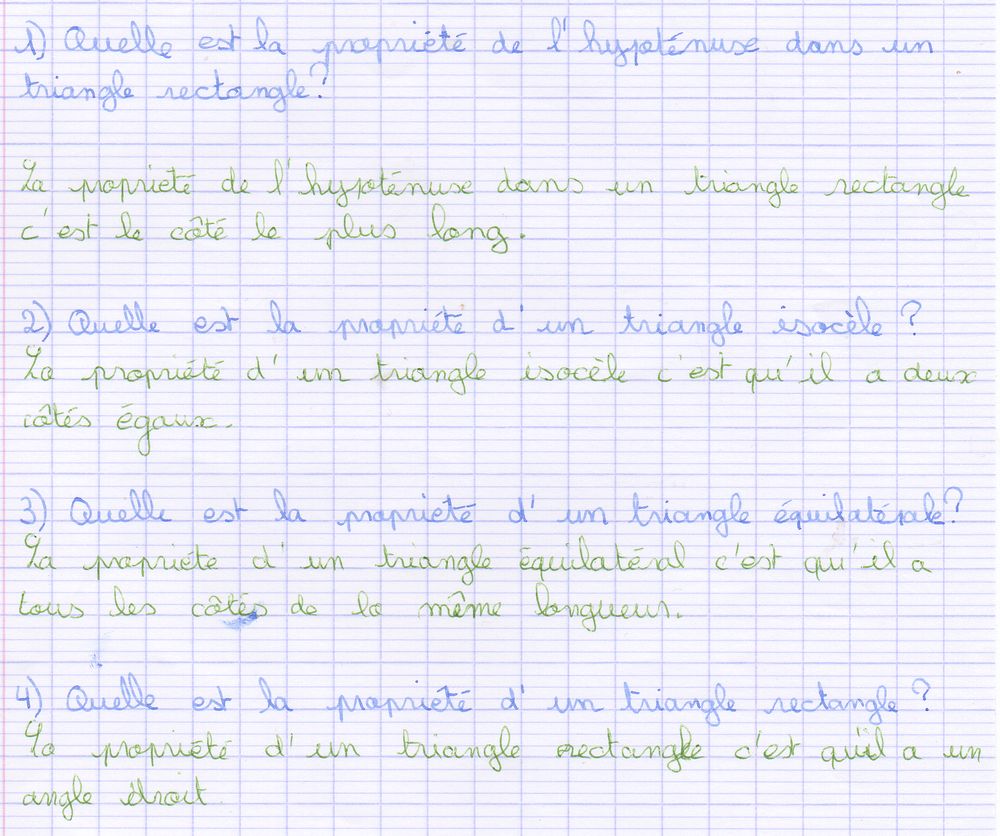 1) Quelle est la propriété de l'hypoténuse dans un
triangle rectangle?
La propriété de l'hypoténuse dans un triangle rectangle
c'est le côté le plus long.
2) Quelle est la propriété d'un triangle isocèle ?
La propriété d'un triangle isocèle c'est qu'il a deux
côtés égaux.
3) Quelle est la propriété d'un triangle équilatérale?
La propriéte d'un triangle équilatéral c'est qu'il a
tous les côtés de la même longueur.
4) Quelle est la propriété d'un triangle rectangle ?
La propriété d'un triangle rectangle c'est qu'il a un
angle droit